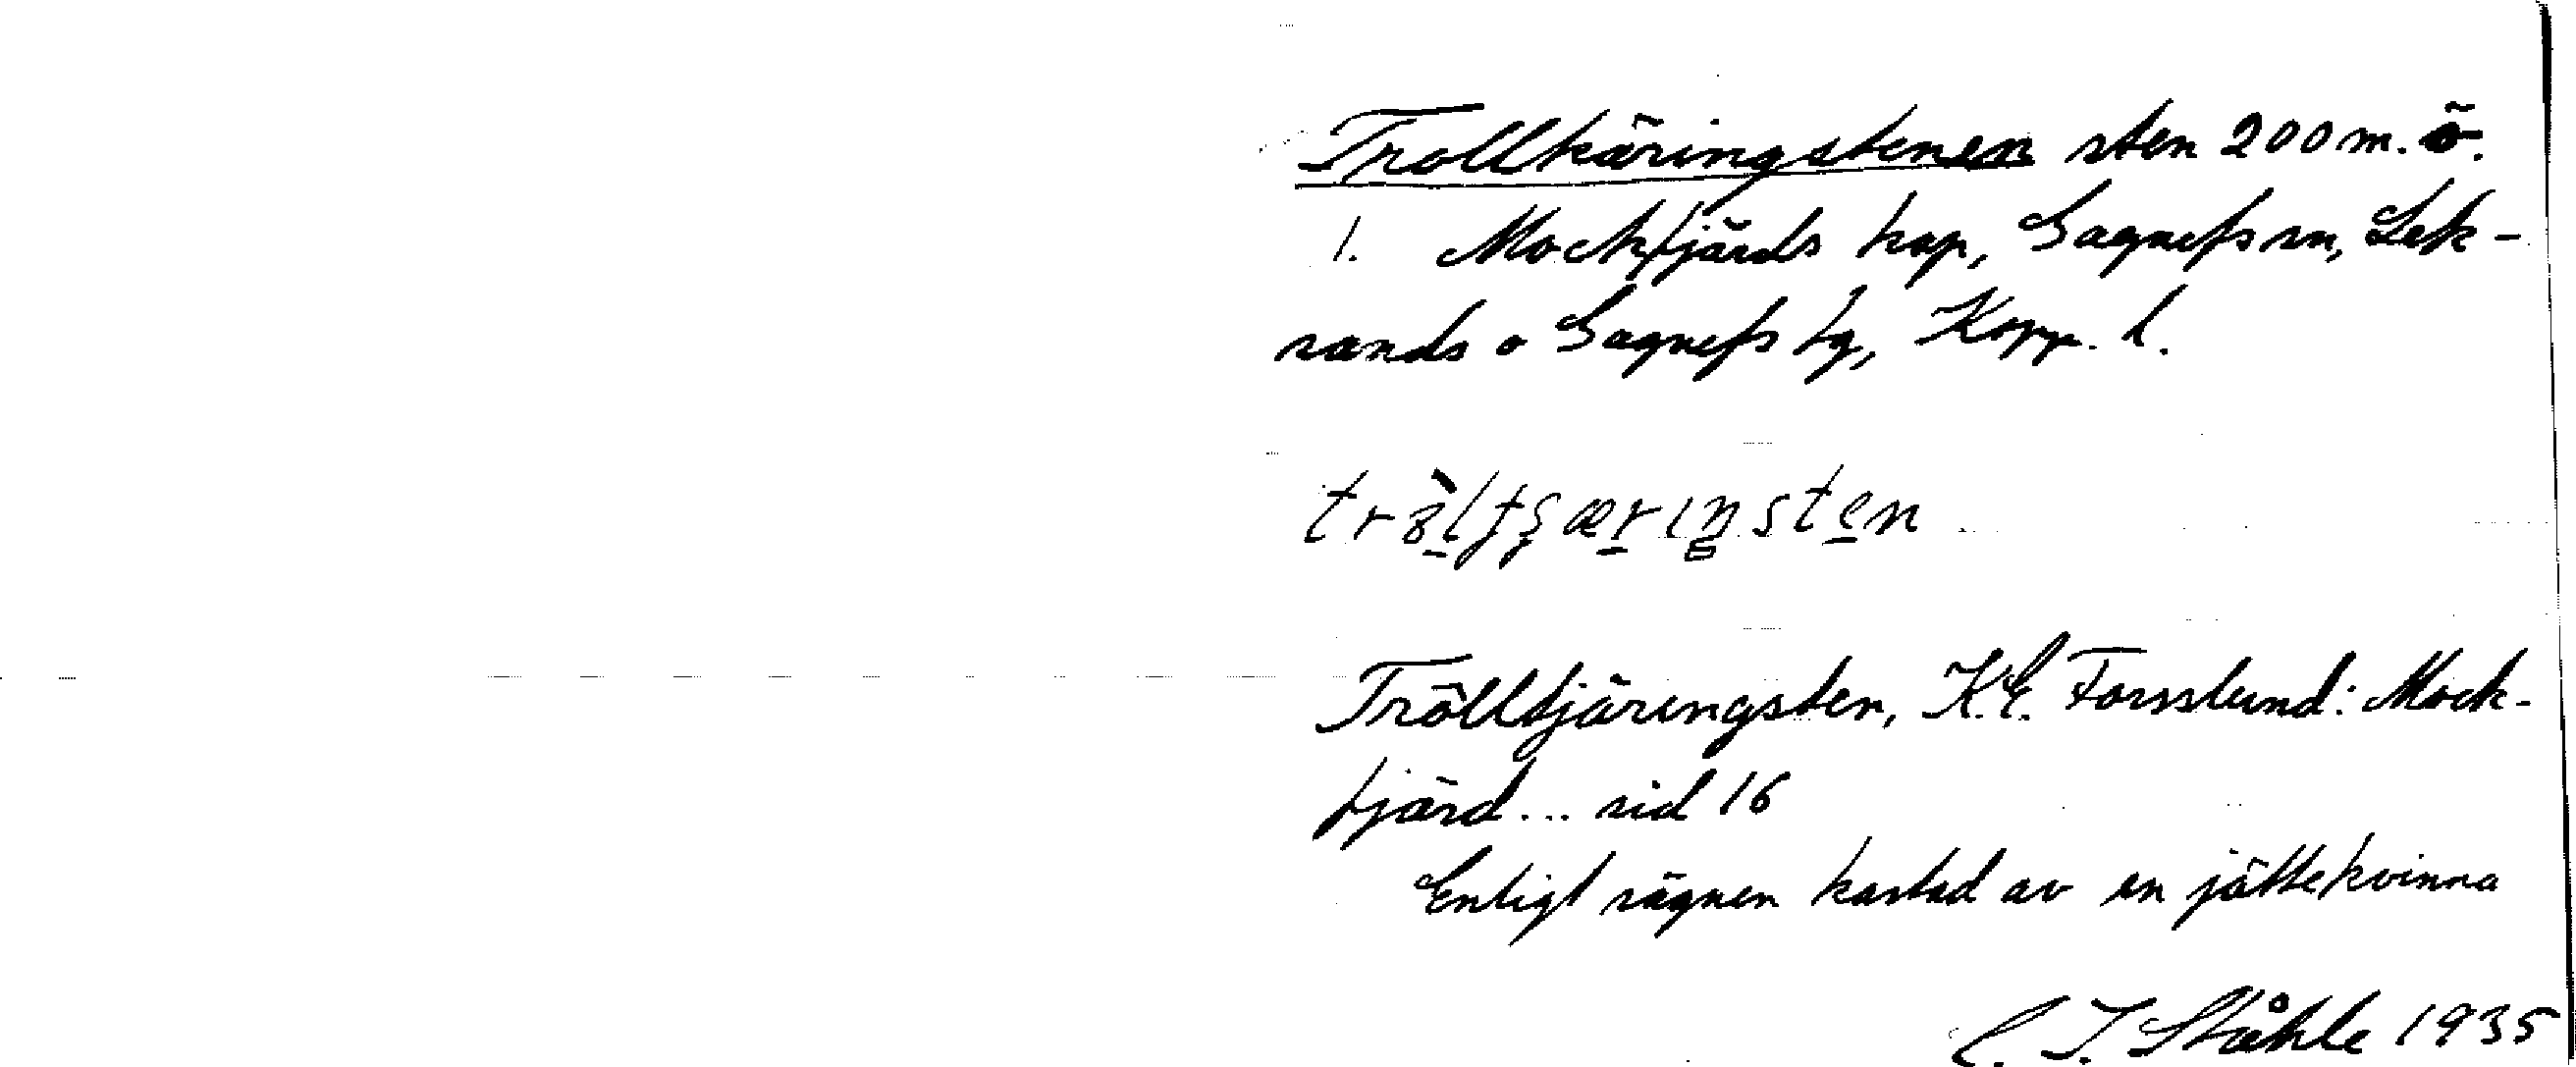 Trollkäringstenen sten 200 m. ö.
1. Mockfjärds kap, Gagnefs sn, Lek-
sands o Gagnefs tg, Kopp. l.
Trölltjäringsten, K.E. Forsslund: Mock-
fjärd... sid 16
Enligt sägnen kastad av en jättekvinna
C. I. Ståhle 1935